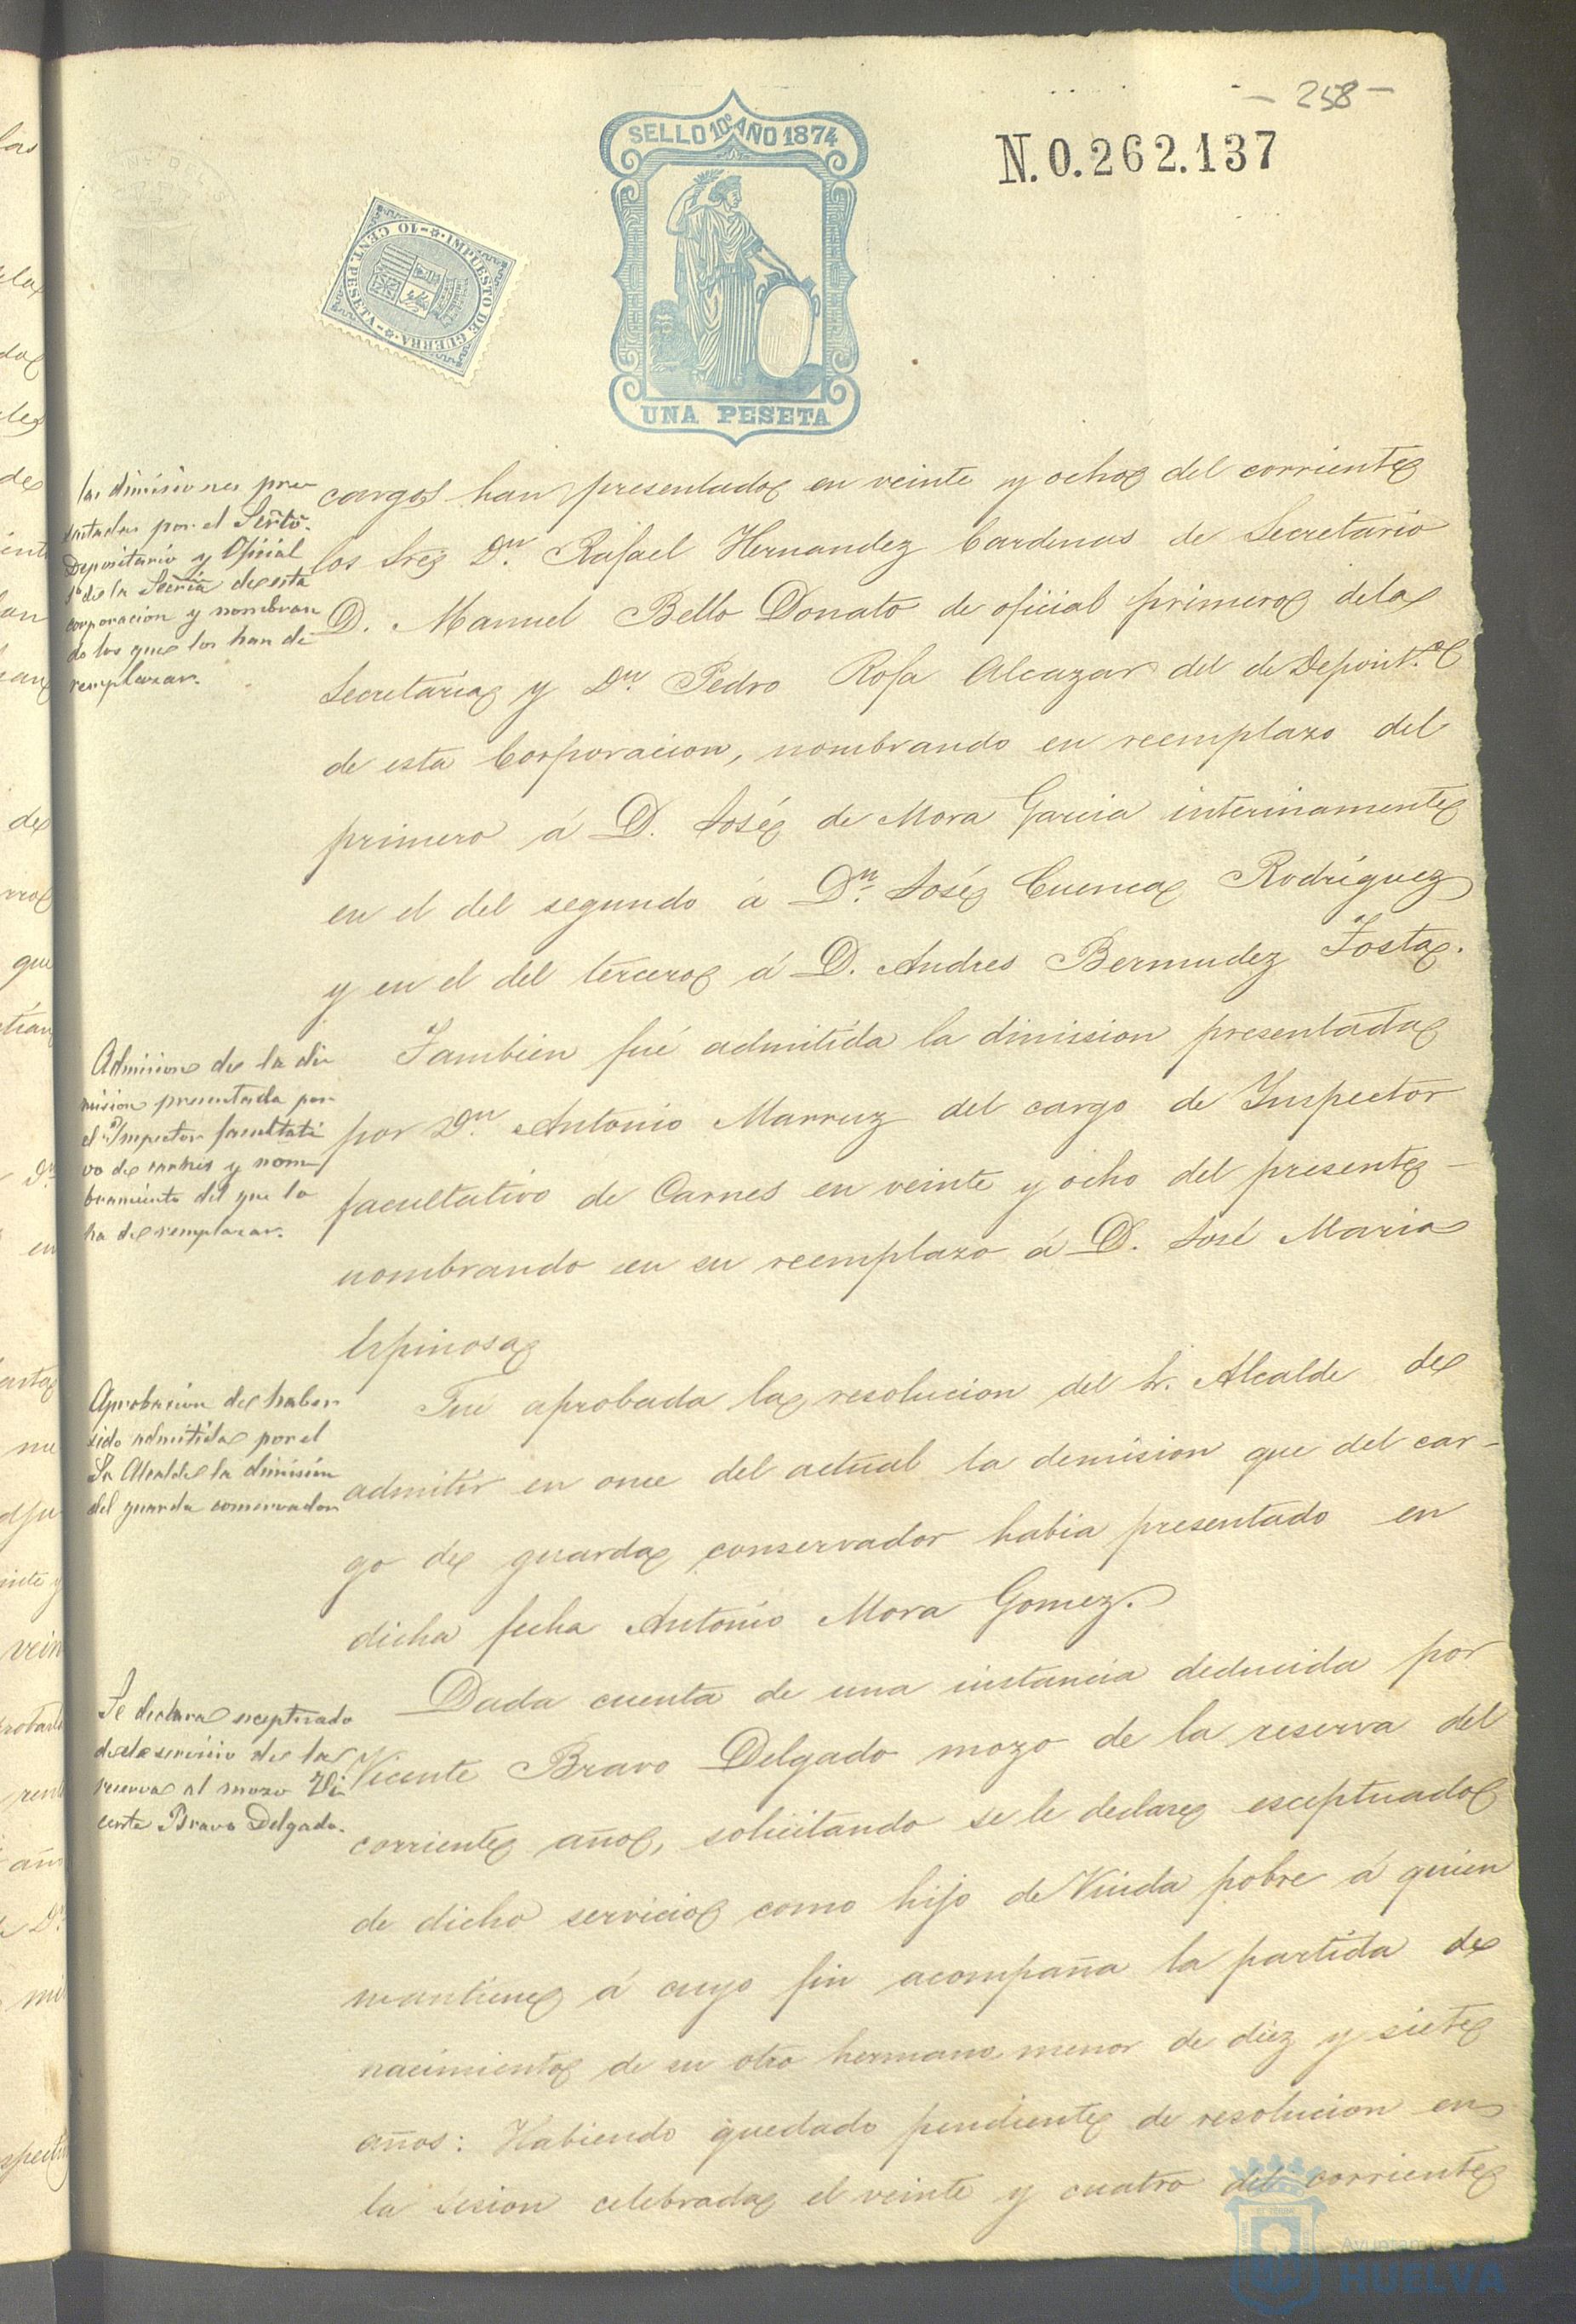 - 258 -
SELLO 10º AÑO 1874
N.0.262.137
IMPUESTO DE GUERRA
10 CENT. PESETA
UNA PESETA
las dimisiones pre-
sentadas por el Serio.
Depositario y Oficial
1º de la Secria de esta
corporacion y nombran
do los que los han de
remplazar.
cargos han presentado en veinte y ocho del corriente
los Sres Dn. Rafael Hernandez Cardenas de Secretario
D. Manuel Bello Donato de oficial primero de la
Secretaria y Dn. Pedro Rofa Alcazar del de Deposit.º
de esta Corporacion, nombrando en reemplazo del
primero á D. José de Mora Garcia interinamente
en el del segundo á Dn. José Cuenca Rodriguez
y en el del tercero á D. Andres Bermudez Tosta.
Admision de la di
mision presentada por
el Inspector facultati
vo de carnes y nom
bramiento del que lo
ha de remplazar.
Tambien fué admitida la dimision presentada
por Dn. Antonio Marruz del cargo de Inspector
facultativo de Carnes en veinte y ocho del presente
nombrando en su reemplazo á D. José Maria
Espinosa
Aprobacion de haber
sido admitida por el
Sr Alcalde la dimision
del guarda conservador
Fué aprobada la resolucion del Sr. Alcalde de
admitir en once del actual la demision que del car-
go de guarda conservador habia presentado en
dicha fecha Antonio Mora Gomez.
Se declara eceptuado
del servicio de la
reserva al mozo Vi
cente Bravo Delgado.
Dada cuenta de una instancia deducida por
Vicente Bravo Delgado mozo de la reserva del
corriente año, solicitando se le declare esceptuado
de dicho servicio como hijo de Viuda pobre á quien
mantiene á cuyo fin acompaña la partida de
nacimiento de su otro hermano menor de diez y siete
años: Habiendo quedado pendiente de resolucion en
la sesion celebrada el veinte y cuatro del corriente
HUELVA